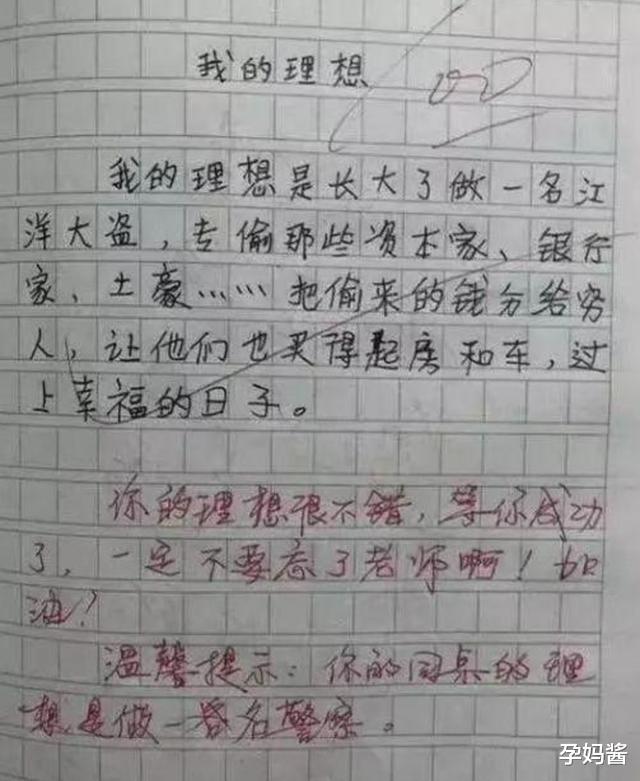 我的理想
我的理想是长大了做一名江
洋大盗，专偷那些资本家、银行
家、土豪……把偷来的钱分给穷
人，让他们也买得起房和车，过
上幸福的日子。
你的理想很不错，等你成功
了，一定不要忘了老师啊！加
油！
温馨提示：你的同桌的理
想是做一名警察。
孕妈酱